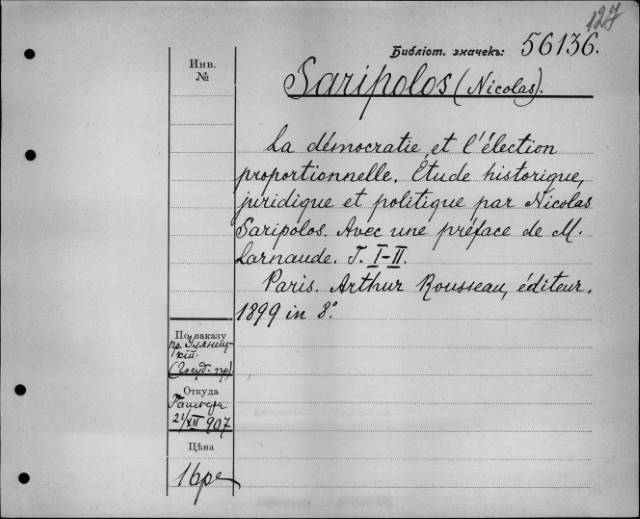 127
Библіот. значекъ: 56136.
Инв.
№
Saripolos (Nicolas).
La démocratie et l'élection
proportionnelle. Étude historique,
juridique et politique par Nicolas
Saripolos. Avec une préface de M.
Larnaude. T. I-II.
Paris. Arthur Rousseau, éditeur.
1899 in 8°.
По заказу
пр. Уляниц-
кій.
(Госуд. пр).
Откуда
21/XII 907
Цѣна
16